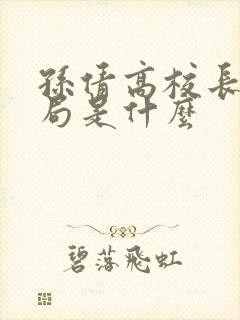 孫倩高校長
局是什麼
碧落飛虹